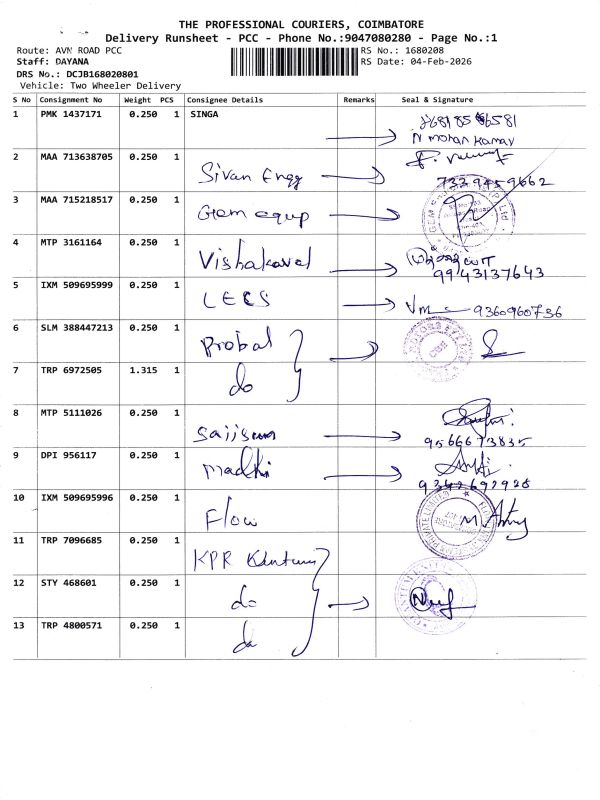 THE PROFESSIONAL COURIERS, COIMBATORE
Delivery Runsheet - PCC - Phone No.:9047080280 - Page No.:1
Route: AVN ROAD PCC
RS No.: 1680208
Staff: DAYANA
RS Date: 04-Feb-2026
DRS No.: DCJB168020801
Vehicle: Two Wheeler Delivery
S No Consignment No Weight PCS Consignee Details Remarks Seal & Signature
1 PMK 1437171 0.250 1 SINGA
N mohan kumar
2 MAA 713638705 0.250 1 Sivan Engg
7339459662
3 MAA 715218517 0.250 1 Gem equp
4 MTP 3161164 0.250 1
9943137643
5 IXM 509695999 0.250 1 LECS 9360960736
6 SLM 388447213 0.250 1 Probal
7 TRP 6972505 1.315 1 do
8 MTP 5111026 0.250 1
9566673835
9 DPI 956117 0.250 1
9342692928
10 IXM 509695996 0.250 1 Flow
11 TRP 7096685 0.250 1 KPR
12 STY 468601 0.250 1 do
13 TRP 4800571 0.250 1 do